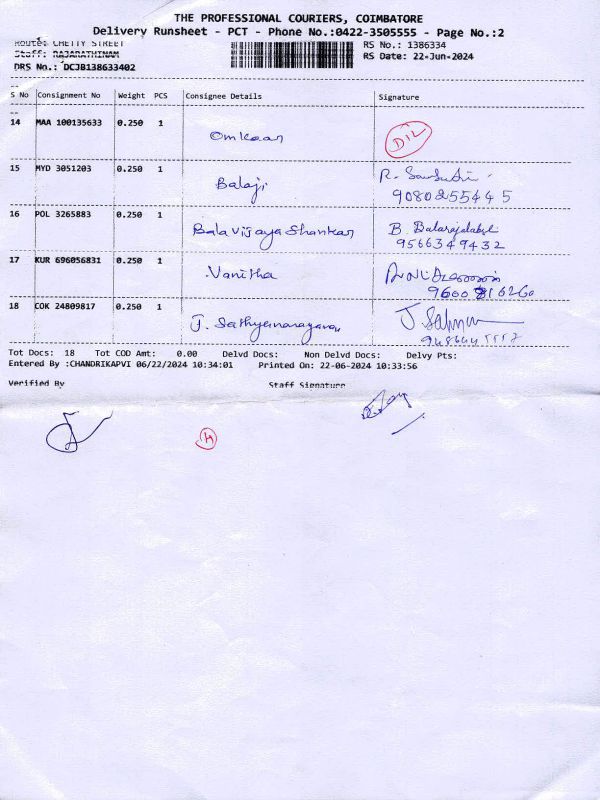 THE PROFESSIONAL COURIERS, COIMBATORE
Delivery Runsheet - PCT - Phone No.:0422-3505555 - Page No.:2
Route: CHETTY STREET
RS No.: 1386334
Staff: RAJARATHINAM
RS Date: 22-Jun-2024
DRS No.: DCJB138633402
S No Consignment No Weight PCS Consignee Details Signature
14 MAA 100135633 0.250 1 Omkaar DIL
15 MYD 3051203 0.250 1 Balaji R.
9080255445
16 POL 3265883 0.250 1 Balavijaya Shankar B.
9566349432
17 KUR 696056831 0.250 1 Vanitha
18 COK 24809817 0.250 1 J. Sathyanarayanan J.
Tot Docs: 18 Tot COD Amt: 0.00 Delvd Docs: Non Delvd Docs: Delvy Pts:
Entered By :CHANDRIKAPVI 06/22/2024 10:34:01 Printed On: 22-06-2024 10:33:56
Verified By Staff Signature